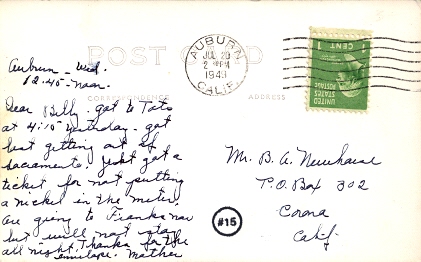 POST CARD
Auburn - Wed.
12:45 - Noon.
CORRESPONDENCE
ADDRESS
Dear Billy - got to Tats
at 4:10 yesterday - got
lost getting out of
Sacramento. Just got a
ticket for not putting
a nickel in the meter.
Are going to Franks now
but will not stay
all night. Thanks for the
envelope. Mother
AUBURN
JUL 20
2 PM
1949
CALIF.
1 CENT 1
UNITED
STATES
POSTAGE
Mr. B. A. Newhouse
P.O. Box 302
Corona
Calif.
#15